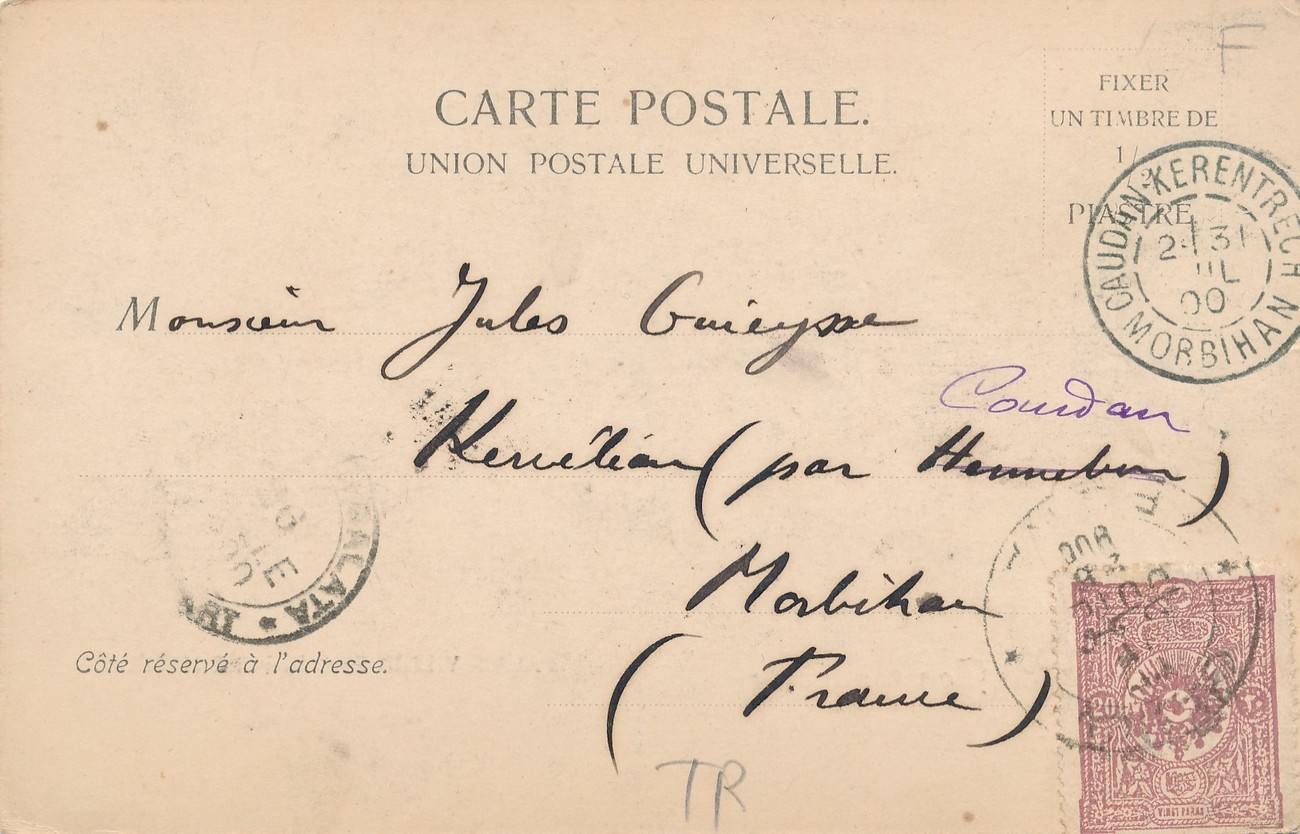 F
CARTE POSTALE.
UNION POSTALE UNIVERSELLE.
FIXER
UN TIMBRE DE
1/2
PIASTRE
CAUDAN-KERENTRECH
2E 31
JUIL
00
MORBIHAN
Monsieur Jules Guieysse
Caudan
(par Hennebon)
Morbihan
(France)
GALATA
Côté réservé à l'adresse.
TR
20
VINGT PARAS